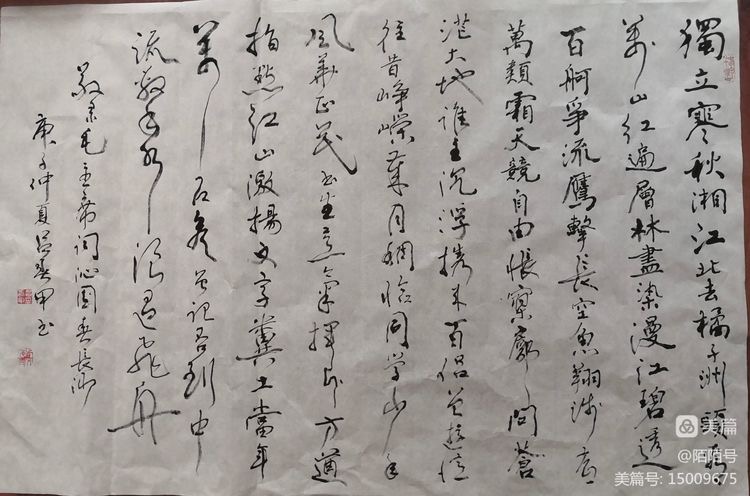 獨立寒秋湘江北去橘子洲頭看
萬山红遍層林盡染漫江碧透
百舸爭流鷹擊長空魚翔淺底
萬類霜天競自由悵寥廓問蒼
茫大地誰主沉浮攜来百侣曾遊憶
往昔崢嶸歲月稠恰同學少年
風華正茂書生意氣揮斥方遒
指點江山激揚文字糞土當年
萬户侯曾記否到中
流擊水浪遏飛舟
敬录毛主席词沁园春长沙
庚子仲夏 甲书
美篇
@陌陌号
美篇号: 15009675